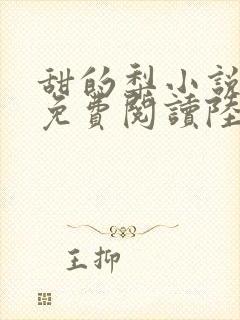 甜的梨小說
免費閱讀陸
王抑